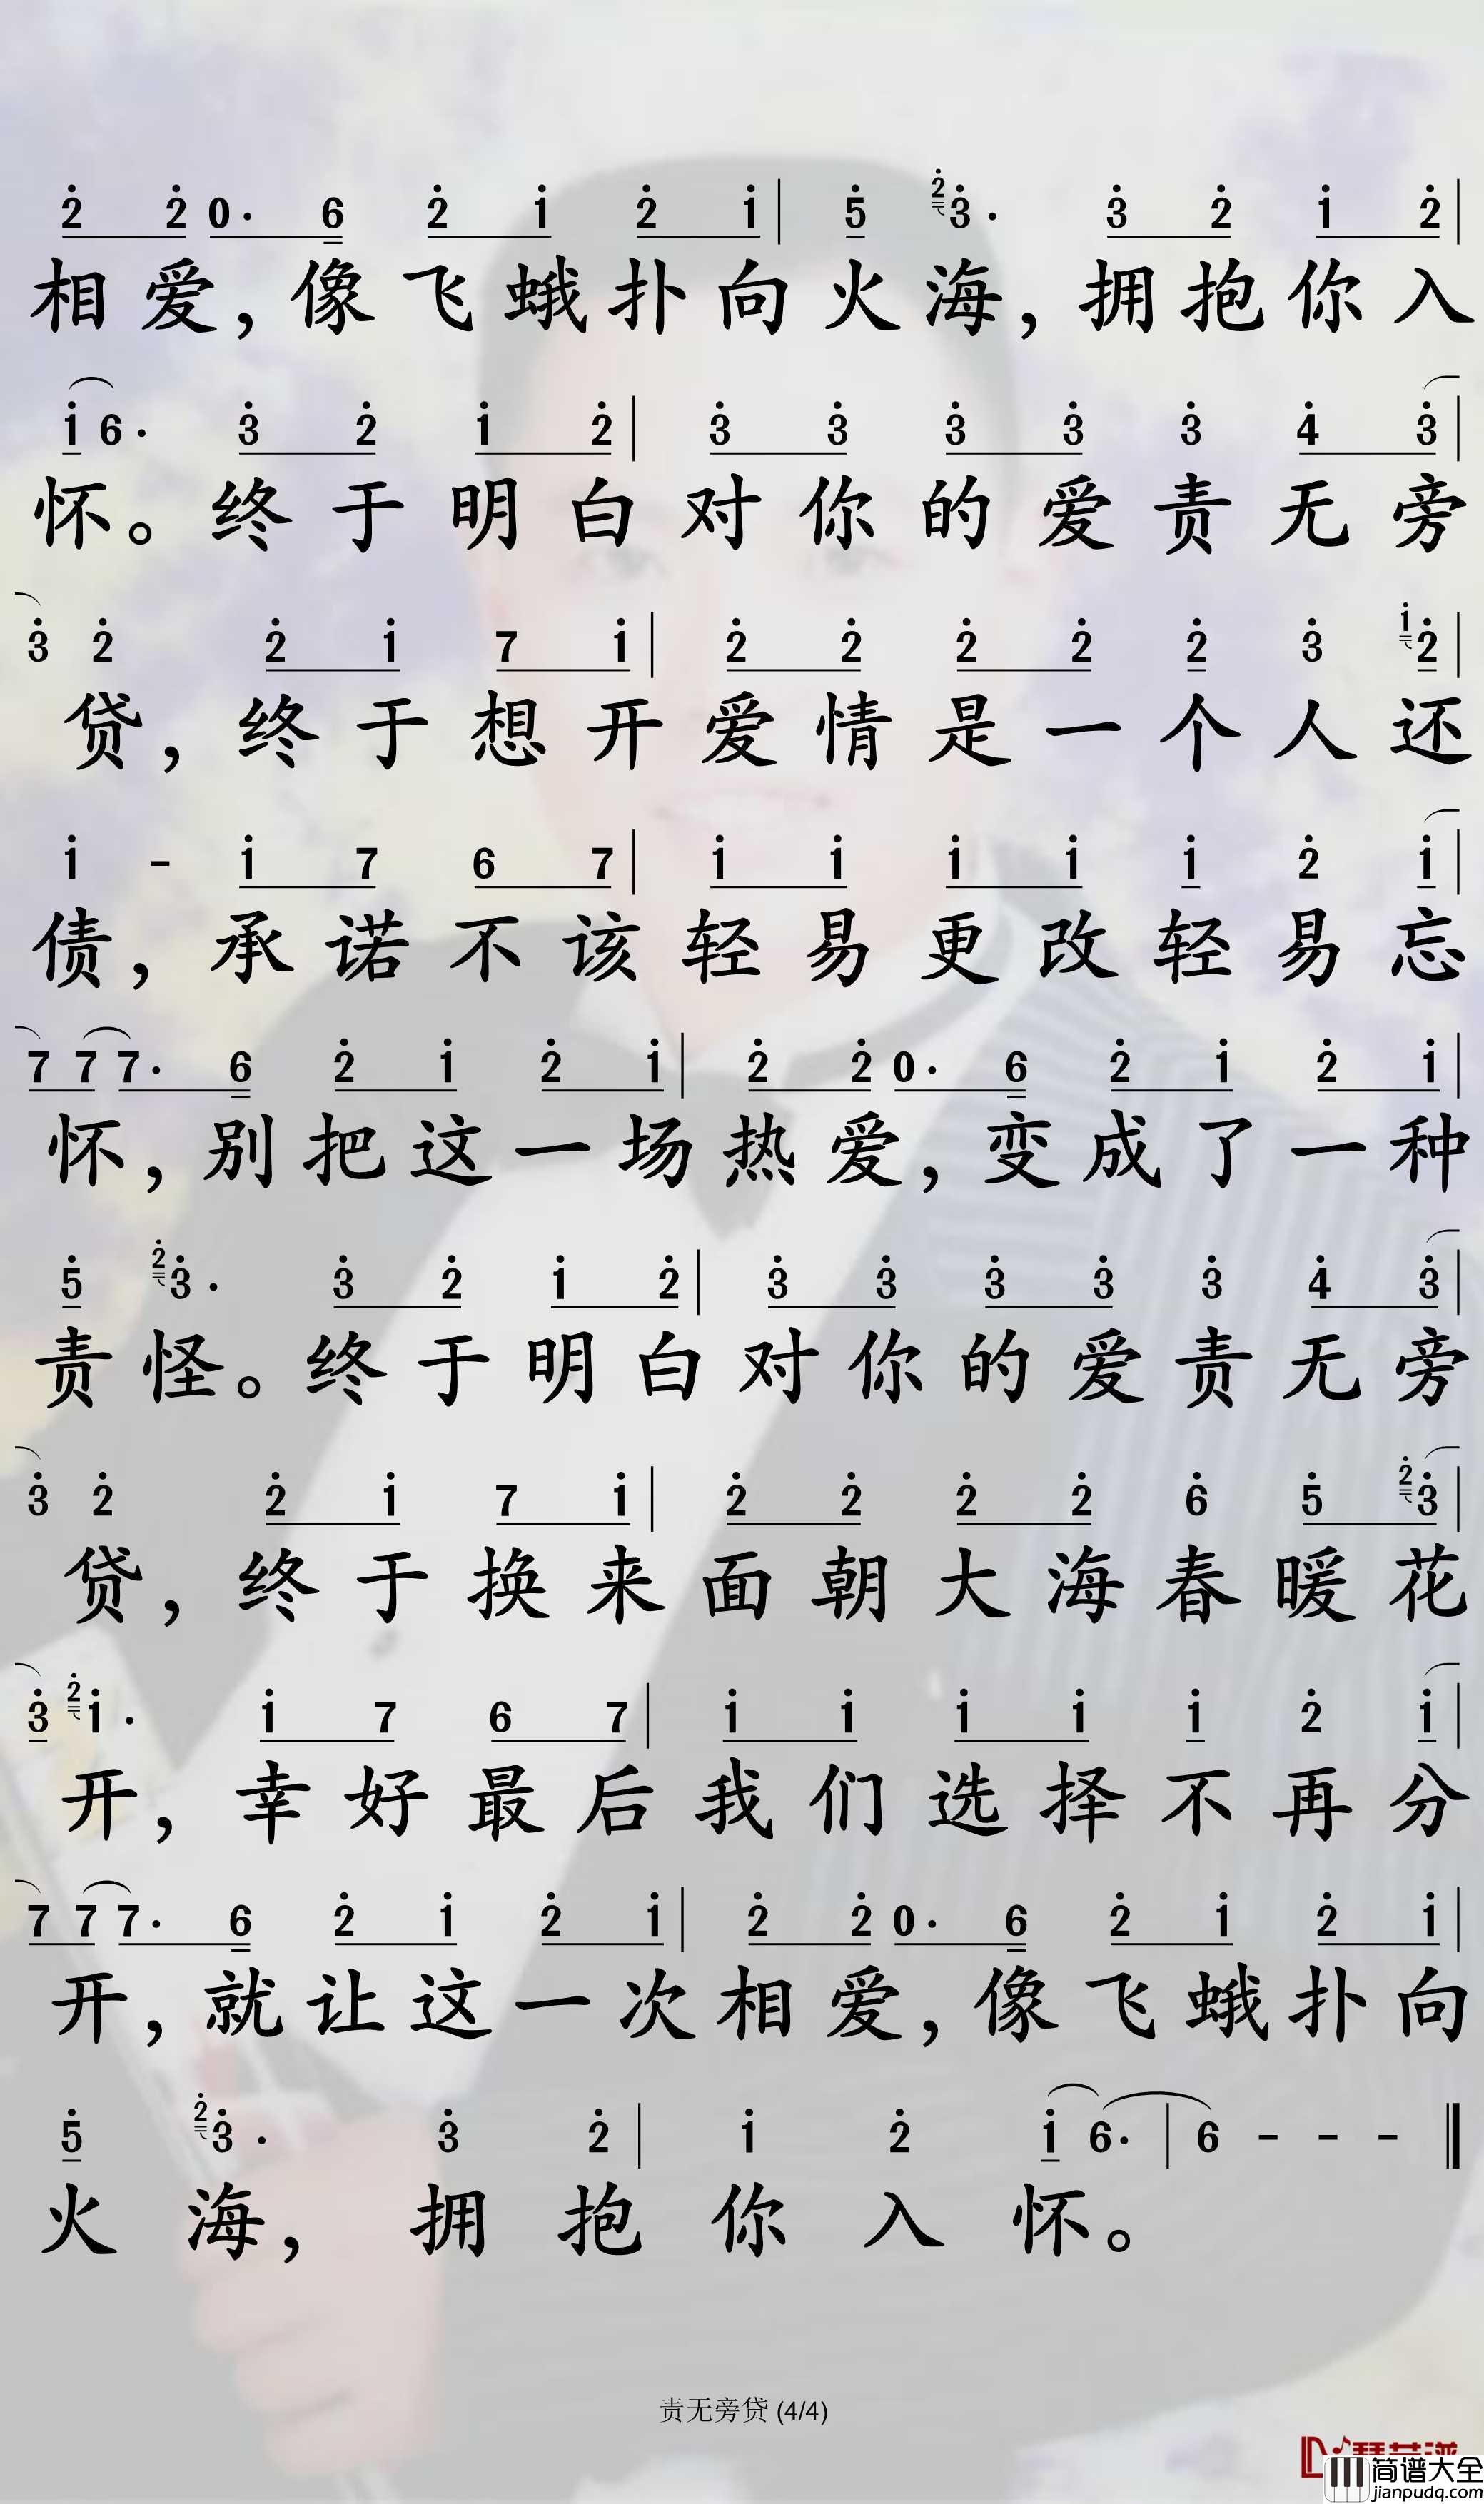 2 2 0· 6 2 1 2 1 | 5 2 3· 3 2 1 2 |
相爱,像飞蛾扑向火海,拥抱你入
1 6· 3 2 1 2 | 3 3 3 3 3 4 3 |
怀。终于明白对你的爱责无旁
3 2 2 1 7 1 | 2 2 2 2 2 3 1 2 |
贷,终于想开爱情是一个人还
1 - 1 7 6 7 | 1 1 1 1 1 2 1 |
债,承诺不该轻易更改轻易忘
7 7 7· 6 2 1 2 1 | 2 2 0· 6 2 1 2 1 |
怀,别把这一场热爱,变成了一种
5 2 3· 3 2 1 2 | 3 3 3 3 3 4 3 |
责怪。终于明白对你的爱责无旁
3 2 2 1 7 1 | 2 2 2 2 6 5 2 3 |
贷,终于换来面朝大海春暖花
3 2 1· 1 7 6 7 | 1 1 1 1 1 2 1 |
开,幸好最后我们选择不再分
7 7 7· 6 2 1 2 1 | 2 2 0· 6 2 1 2 1 |
开,就让这一次相爱,像飞蛾扑向
5 2 3· 3 2 | 1 2 1 6· | 6 - - - ‖
火海,拥抱你入怀。
责无旁贷 (4/4)
简谱大全
jianpudq.com